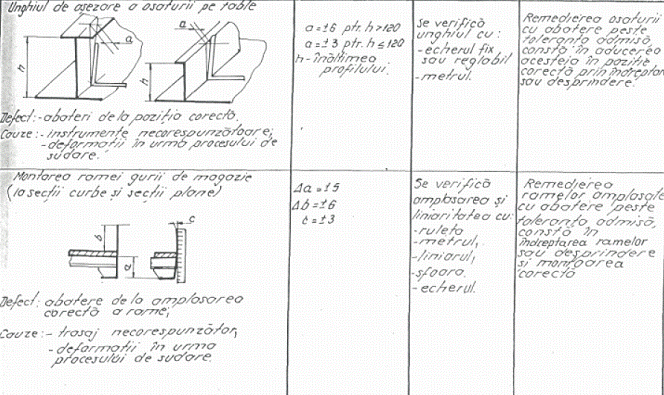 Unghiul de așezare a osaturii pe table
a
a
h
h
Defect:- abateri de la poziția corectă.
Cauze:- instrumente necorespunzătoare;
- deformații în urma procesului de
sudare.
a = ±6 ptr. h > 120
a = ±3 ptr. h ≤ 120
h - înălțimea
profilului.
Se verifică
unghiul cu:
- echerul fix
sau reglabil
- metrul.
Remedierea osaturii
cu abatere peste
toleranța admisă
constă în aducerea
acesteia în poziție
corectă prin îndreptare
sau desprindere.
Montarea ramei gurii de magazie
(la secții curbe și secții plane)
b
a
c
Defect: abatere de la amplasarea
corectă a ramei;
Cauze:- trasaj necorespunzător,
- deformații în urma
procesului de sudare.
Δa = ±5
Δb = ±6
c = ±3
Se verifică
amplasarea și
liniaritatea cu:
- ruleta
- metrul,
- liniarul,
- sfoara.
- echerul.
Remedierea
ramelor amplasate
cu abatere peste
toleranța admisă,
constă în
îndreptarea ramelor
sau desprindere
și montarea
corectă